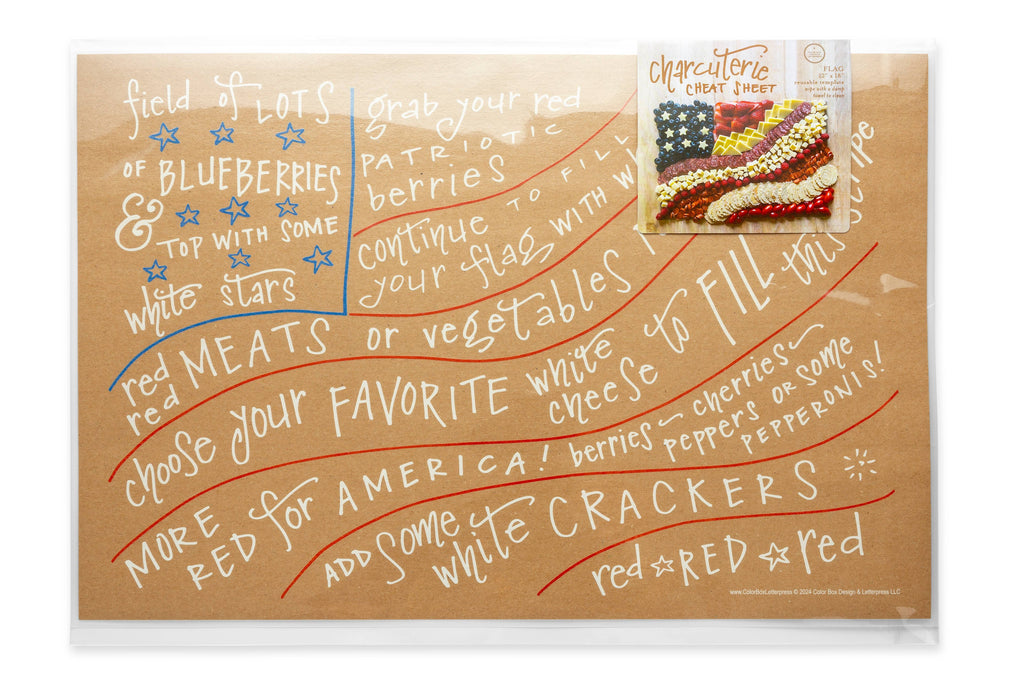 field of LOTS
OF BLUEBERRIES
& TOP WITH SOME
white stars
grab your red
PATRIOTIC
berries
continue TO FILL
your flag WITH
red MEATS or vegetables
red
choose your FAVORITE white cheese to FILL this stripe
MORE RED for AMERICA! berries - cherries - peppers OR SOME PEPPERONIS!
ADD SOME white CRACKERS
red RED red
www.ColorBoxLetterpress © 2024 Color Box Design & Letterpress LLC
charcuterie
CHEAT SHEET
FLAG
22" x 18"
reusable template
wipe with a damp
towel to clean